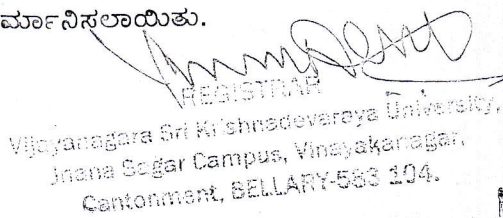 ರ್ಮಾನಿಸಲಾಯಿತು.
REGISTRAR
Vijayanagara Sri Krishnadevaraya University,
Jnana Sagar Campus, Vinayakanagar,
Cantonment, BELLARY-583 104.